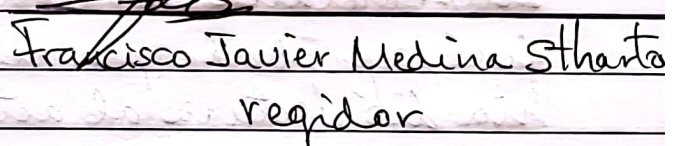 Francisco Javier Medina Stharta
regidor